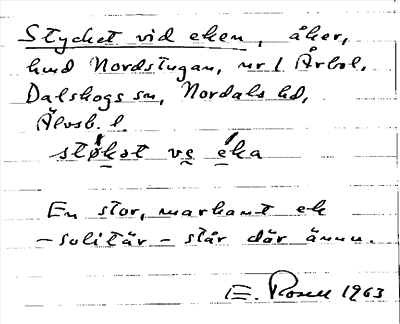 Stycket vid eken, åker,
hmd Nordstugan, nr 1 Årbol,
Dalskogs sn, Nordals hd,
Älvsb. l.
støkət ve eka
En stor, markant ek
– solitär – står där ännu.
E. Rosell 1963